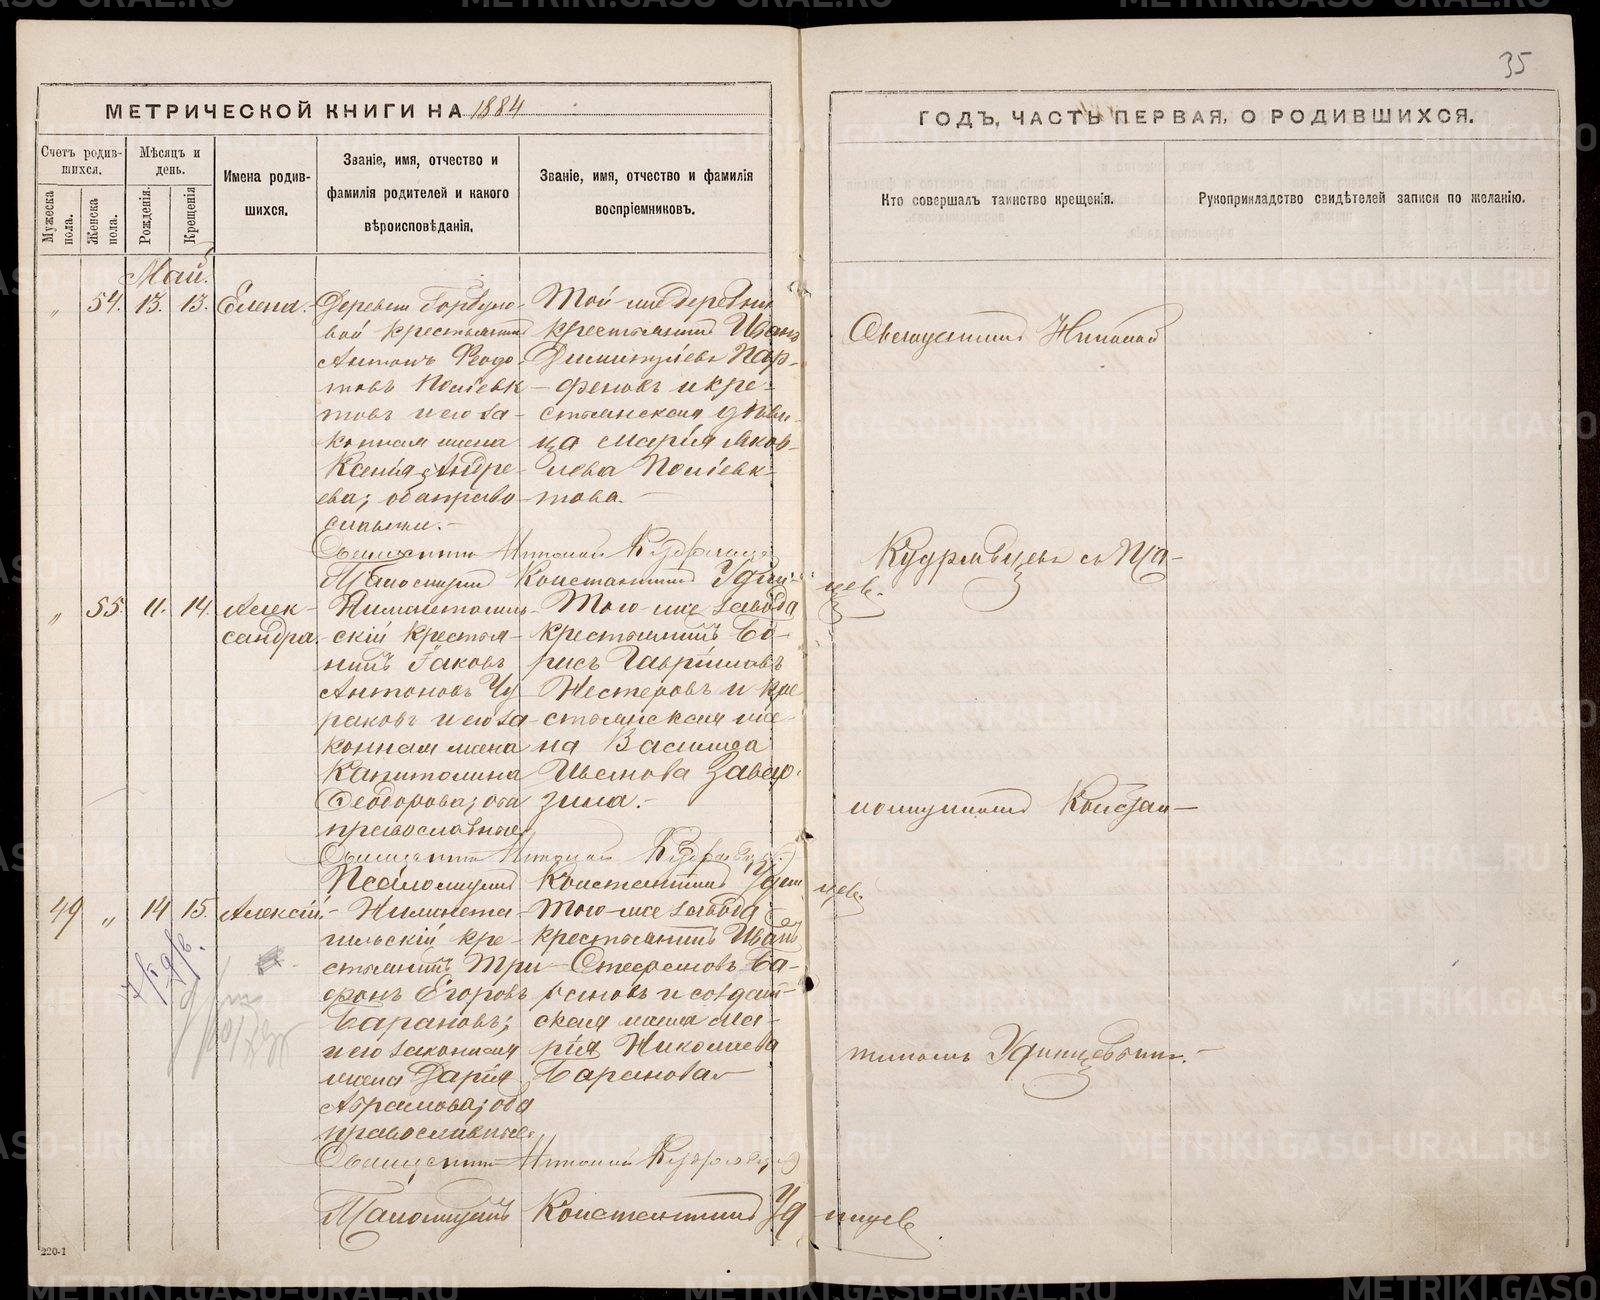 35
МЕТРИЧЕСКОЙ КНИГИ НА 1884
ГОДЪ, ЧАСТЬ ПЕРВАЯ, О РОДИВШИХСЯ.
Счетъ родив-
шихся.
Мѣсяцъ и
день.
Мужеска
пола.
Женска
пола.
Рожденія.
Крещенія
Имена родив-
шихся.
Званіе, имя, отчество и
фамилія родителей и какого
вѣроисповѣданія.
Званіе, имя, отчество и фамилія
воспріемниковъ.
Кто совершалъ таинство крещенія.
Рукоприкладство свидѣтелей записи по желанію.
Май.
" 54. 13. 13. Елена.
Деревни Горбуно-
вой крестьянинъ
Антонъ Ѳедо-
товъ Поліевк-
товъ и его за-
конная жена
Ксенія Андре-
ева; оба право-
славные.
Той-же деревни
крестьянинъ Иванъ
Димитріевъ Пар-
феновъ и кре-
стьянская дѣви-
ца Марія Яков-
лева Поліевк-
това.
Священникъ Николай
Священникъ Николай Кудрявцевъ
Псаломщикъ Константинъ Удин-
цевъ.
Кудрявцевъ съ Пса-
" 55. 11. 14. Алек-
сандра.
Нижнетагиль-
скій крестья-
нинъ Іаковъ
Антоновъ Чу
раковъ и его за-
конная жена
Капитолина
Ѳеодорова; оба
православные.
Того-же завода
крестьянинъ Бо-
рисъ Гавріиловъ
Нестеровъ и кре
стьянская же-
на Васильева
Завер-
зина.
ломщикомъ Констан-
Священникъ Николай Кудрявцевъ
Псаломщикъ Константинъ Удин
цевъ.
49 " 14 15. Алексій.
Нижнета-
гильскій кре-
стьянинъ Три-
фонъ Егоровъ
Барановъ;
и его законная
жена Дарія
Абрамова; оба
православные.
Того-же завода
крестьянинъ Иванъ
Стефановъ Ба-
рановъ и солдат-
ская жена Ма-
рія Николаева
Баранова
тиномъ Удинцевымъ.
Священникъ Николай Кудрявцевъ
Псаломщикъ Константинъ Уд
инцевъ
220-1
METRIKI.GASO-URAL.RU